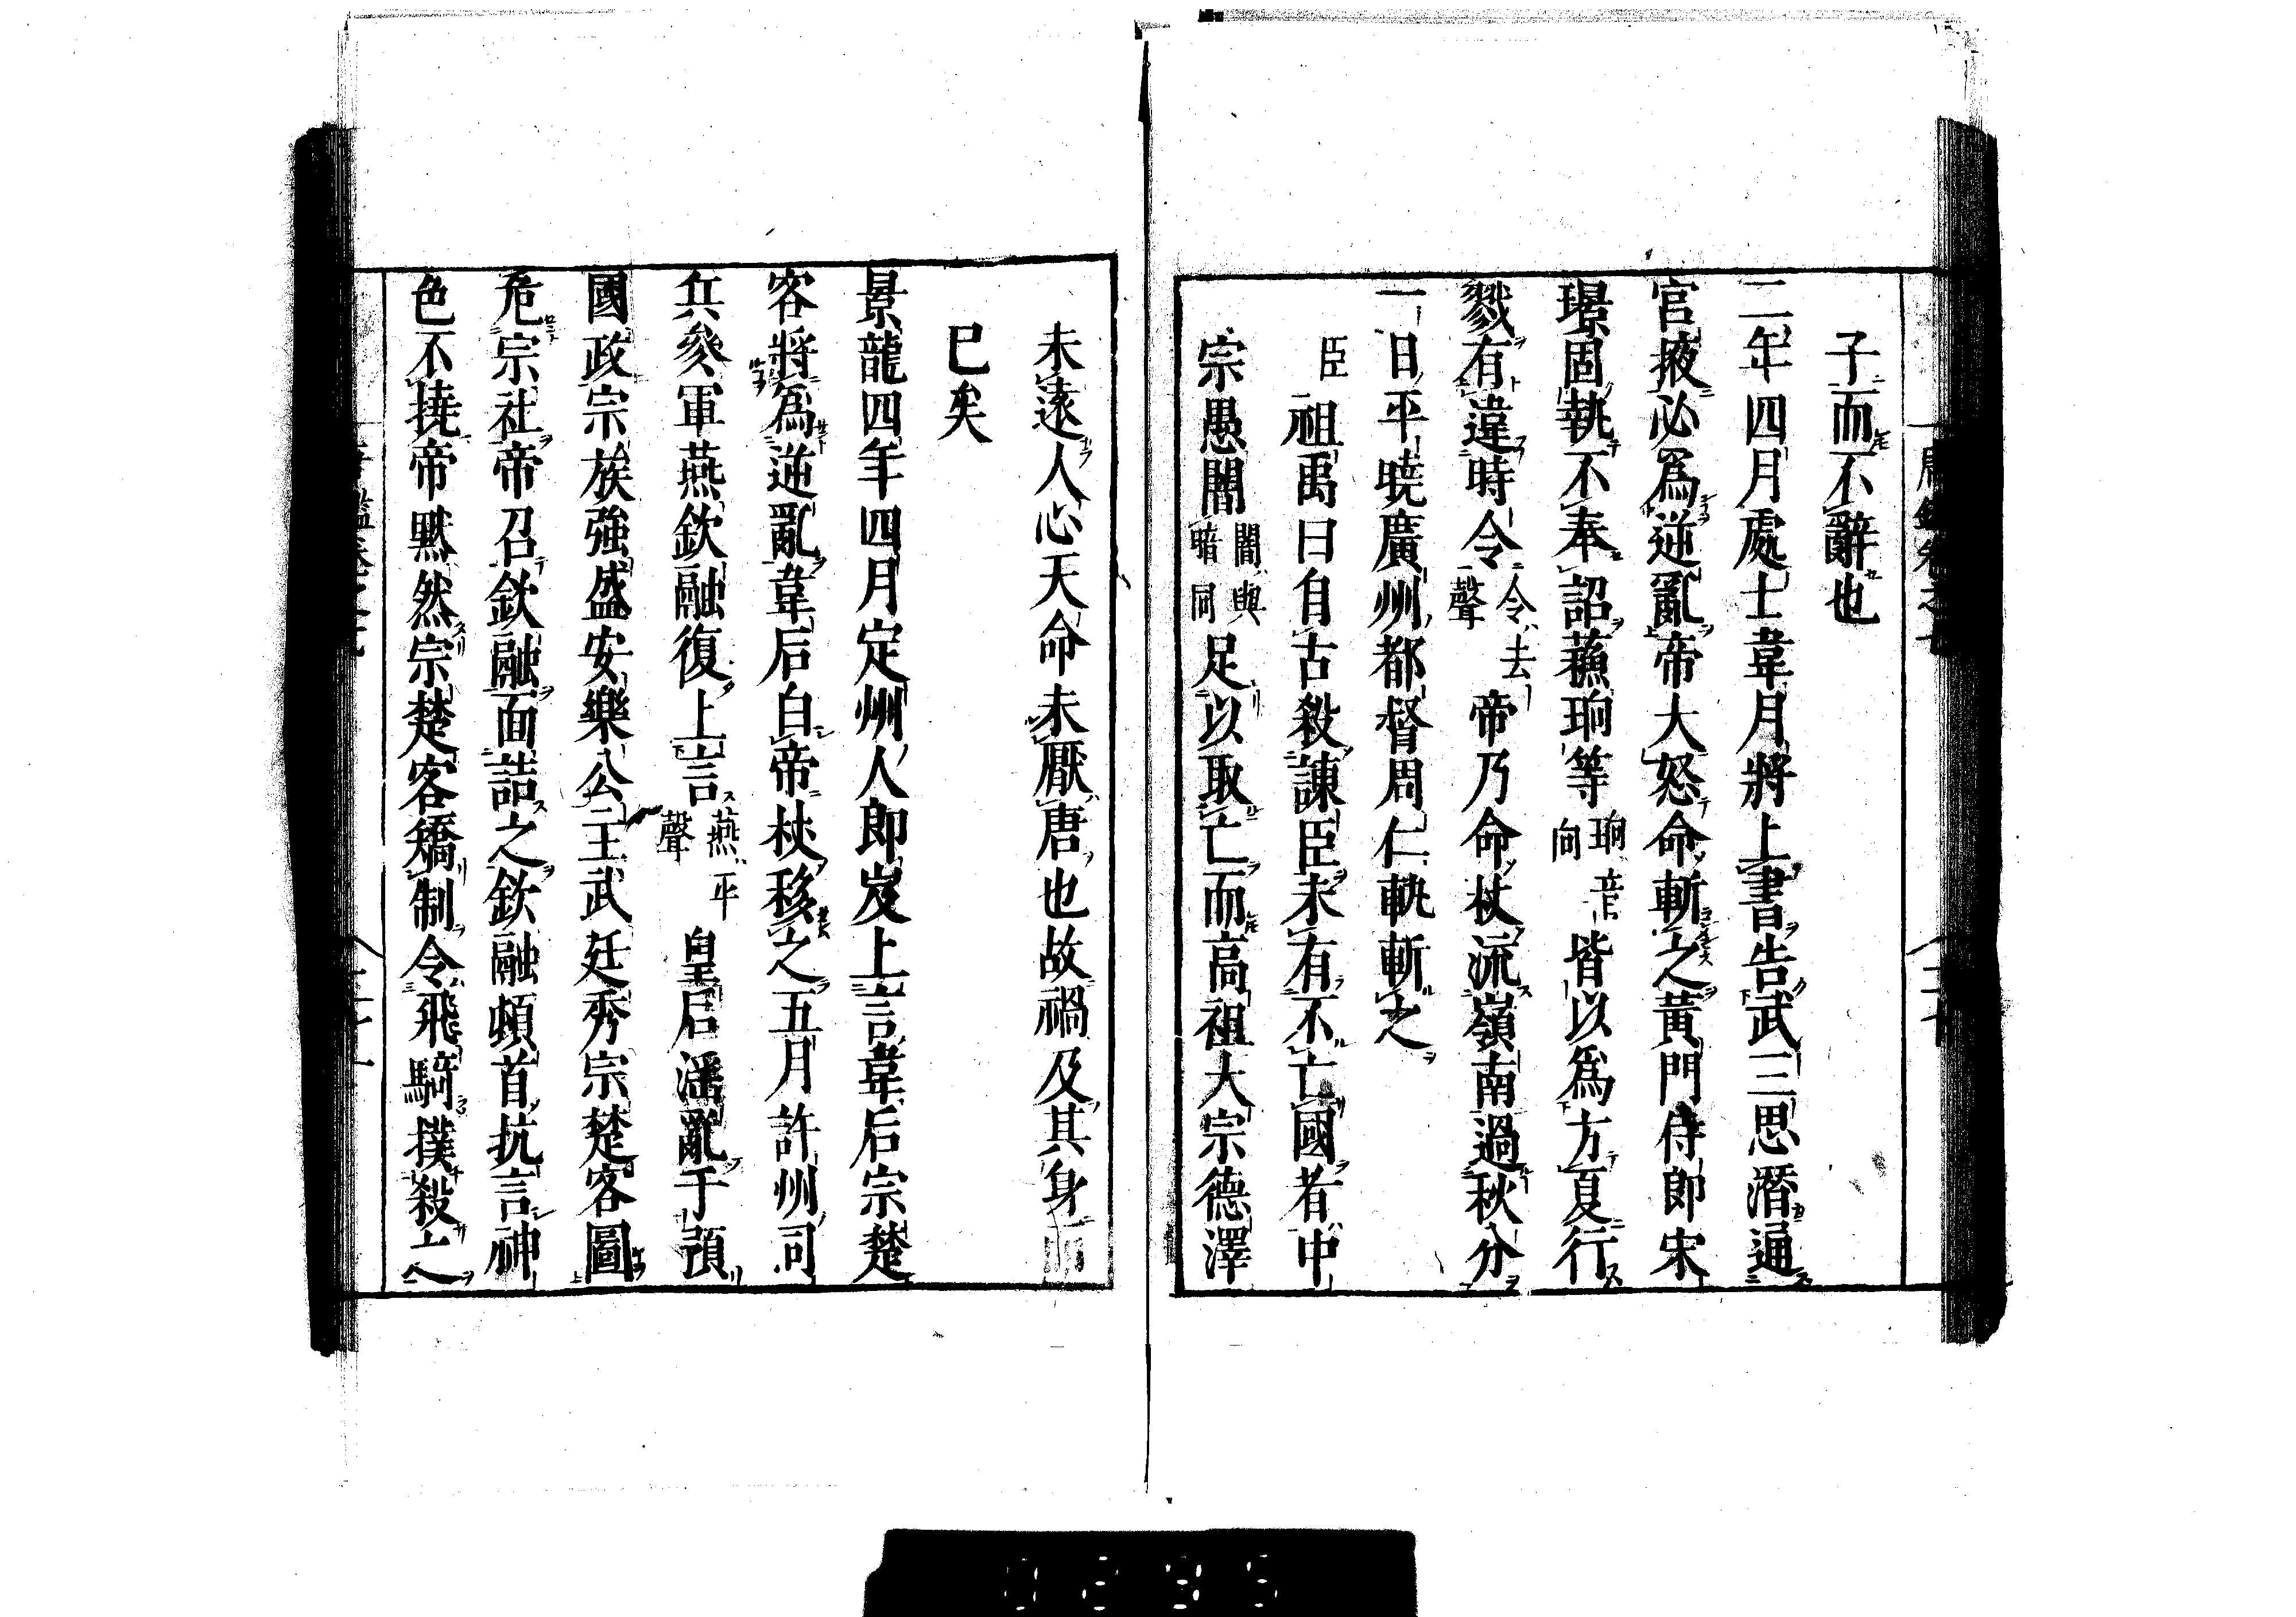 子而不辭也
二年四月處士韋月將上書告武三思潛通
官掖必爲逆亂帝大怒命斬之黃門侍郎宋
璟固執不奉詔蘇珦等珦音向皆以爲方夏行
戮有違時令令去聲帝乃命杖流嶺南過秋分
一日平曉廣州都督周仁軌斬之
臣祖禹曰自古殺諫臣未有不亡國者中
宗愚闇闇與暗同足以取亡而高祖大宗德澤
未遠人心天命未厭唐也故禍及其身而
已矣
景龍四年四月定州人郎岌上言韋后宗楚
客將爲逆亂韋后白帝杖移之五月許州司
兵參軍燕欽融復上言燕平聲皇后淫亂干預
國政宗族強盛安樂公主武延秀宗楚客圖
危宗社帝召欽融面詰之欽融頓首抗言神
色不撓帝默然宗楚客矯制令飛騎撲殺之